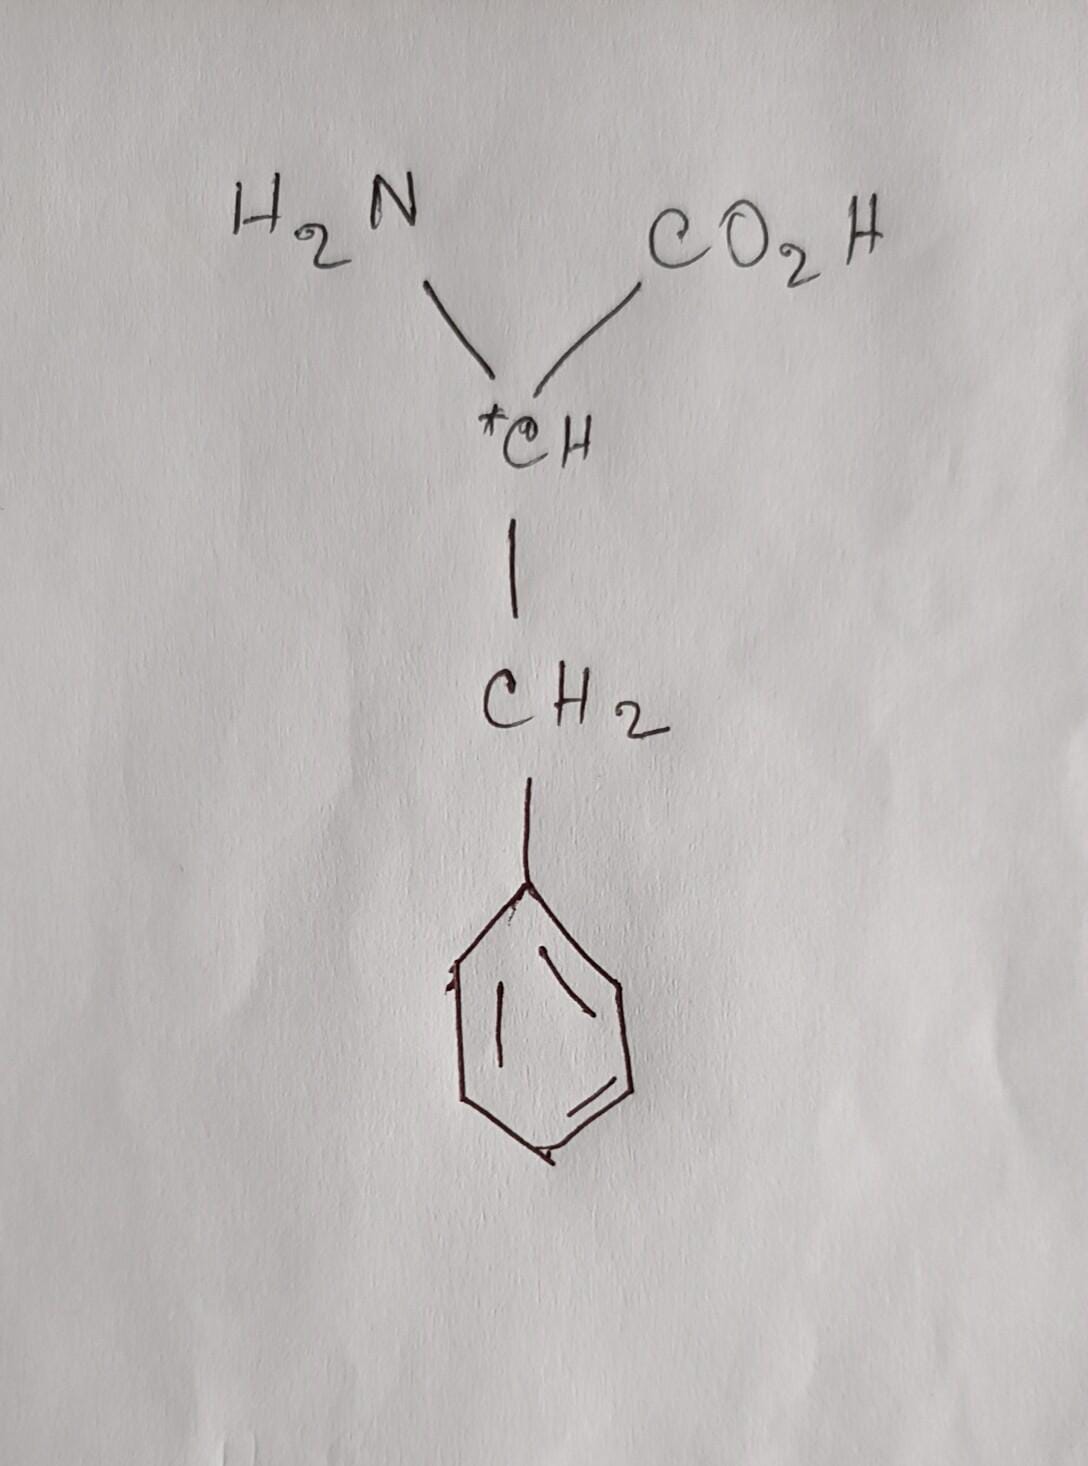 H₂N CO₂H
*CH
CH₂